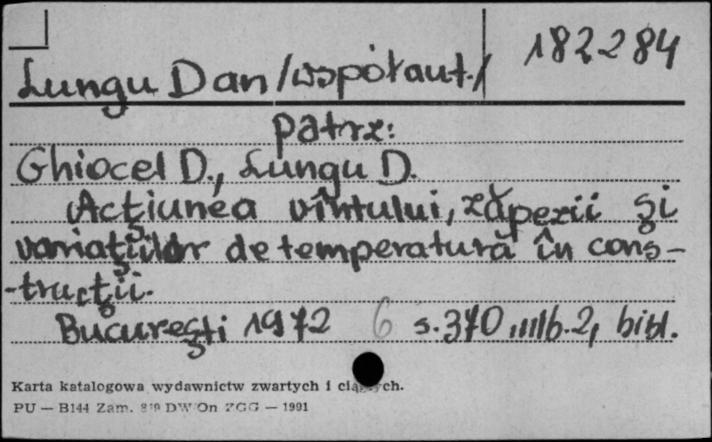 182284
Lungu Dan /współaut./
patrz:
Ghiocel D., Lungu D.
Acţiunea vîntului, zăpezii şi
variaţiilor de temperatură în cons-
-trucţii.
Bucureşti 1972 6 s. 370, tab. 2, bibl.
Karta katalogowa wydawnictw zwartych i ciągłych.
PU — B144 Zam. DW/On ZGG — 1991